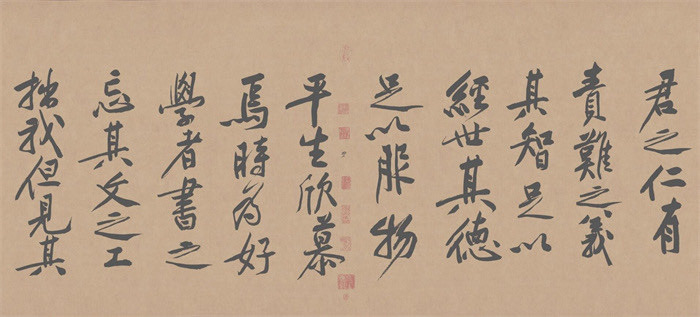 君之仁有
責難之義
其智足以
經世其德
足以服物
平生欣慕
焉時為好
學者書之
忘其文之工
拙我但見其